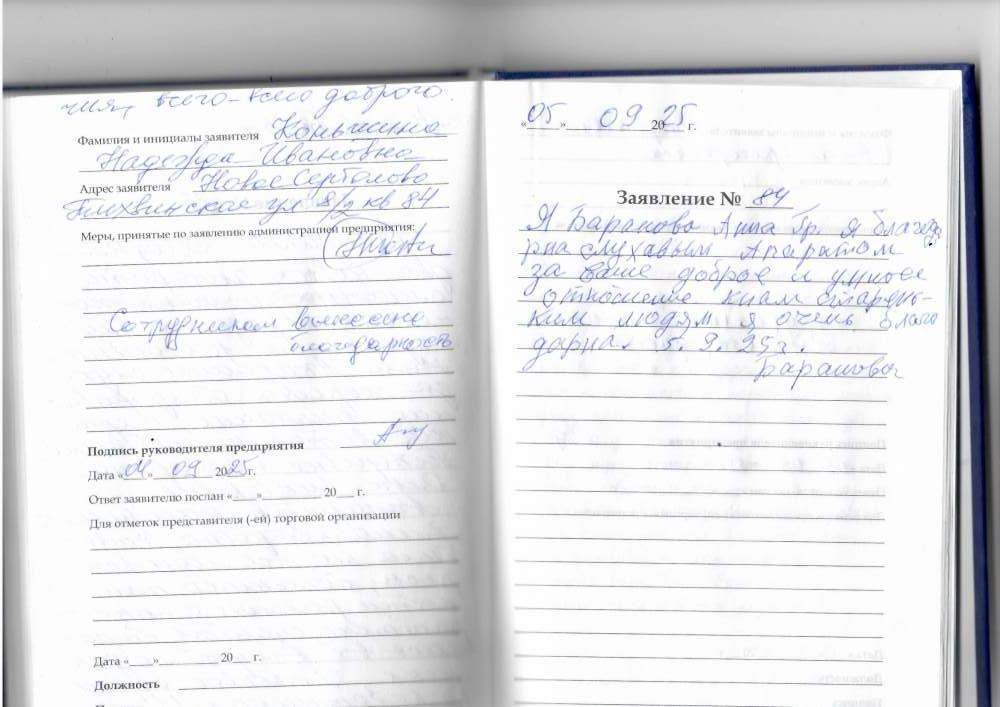 всего-всего доброго.
Фамилия и инициалы заявителя Коньшина
Надежда Ивановна
Адрес заявителя Новое Сертолово
Тихвинская ул 8/2 кв 84
Меры, принятые по заявлению администрацией предприятия:
Сотрудникам вынесена
благодарность
Подпись руководителя предприятия
Дата «04» 09 2025г.
Ответ заявителю послан «___»__________ 20___ г.
Для отметок представителя (-ей) торговой организации
Дата «____»__________ 20___ г.
Должность
«05» 09 2025г.
Заявление № 84
Я Баранова Анна Гр. Я благода
рна слухавым Апаратом
за Ваше доброе и умное
отношение кнам старень-
ким людям я очень благо
дарна. 5. 9. 25г.
Баранова